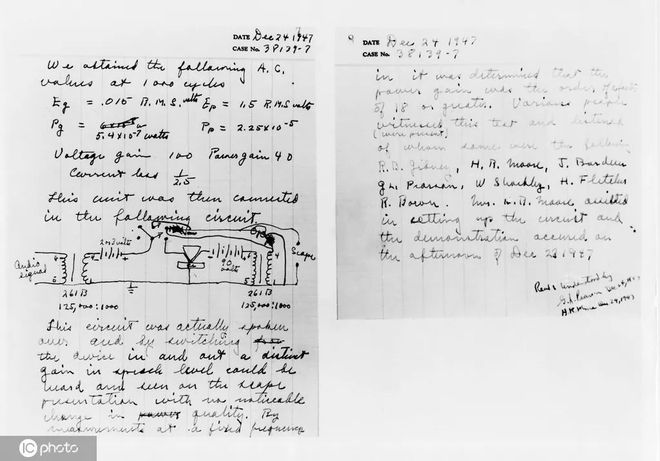 DATE Dec 24 1947
CASE No. 38139-7
We obtained the following A.C.
values at 1000 cycles
Eg = .015 R.M.S. volts Ep = 1.5 R.M.S. volts
Pg = 5.4 x 10-7 watts Pp = 2.25 x 10-5
Voltage gain 100 Power gain 40
Current loss 1/2.5
This unit was then connected
in the following circuit
Audio signal
90 volts
Scope
261 B
125,000:1000
261 B
125,000:1000
This circuit was actually spoken
over and by switching
the device in and out a distinct
gain in speech level could be
heard and seen on the scope
presentation with no noticeable
change in quality. By
measurements at a fixed frequence
9 DATE Dec 24 1947
CASE No. 38139-7
in it was determined that the
power gain was the order of
of 18 or greater. Various people
witnessed this test and listened
of whom some were the following
R.B. Gibney, H. R. Moore, J. Bardeen
G.L. Pearson, W Shockley, H. Fletcher
R. Bown. Mr. H.R. Moore assisted
in setting up the circuit and
the demonstration occured on
the afternoon of Dec 23 1947
Read & Understood by
G.L. Pearson Dec 24, 1947
H.R. Moore Dec 24, 1947
IC photo